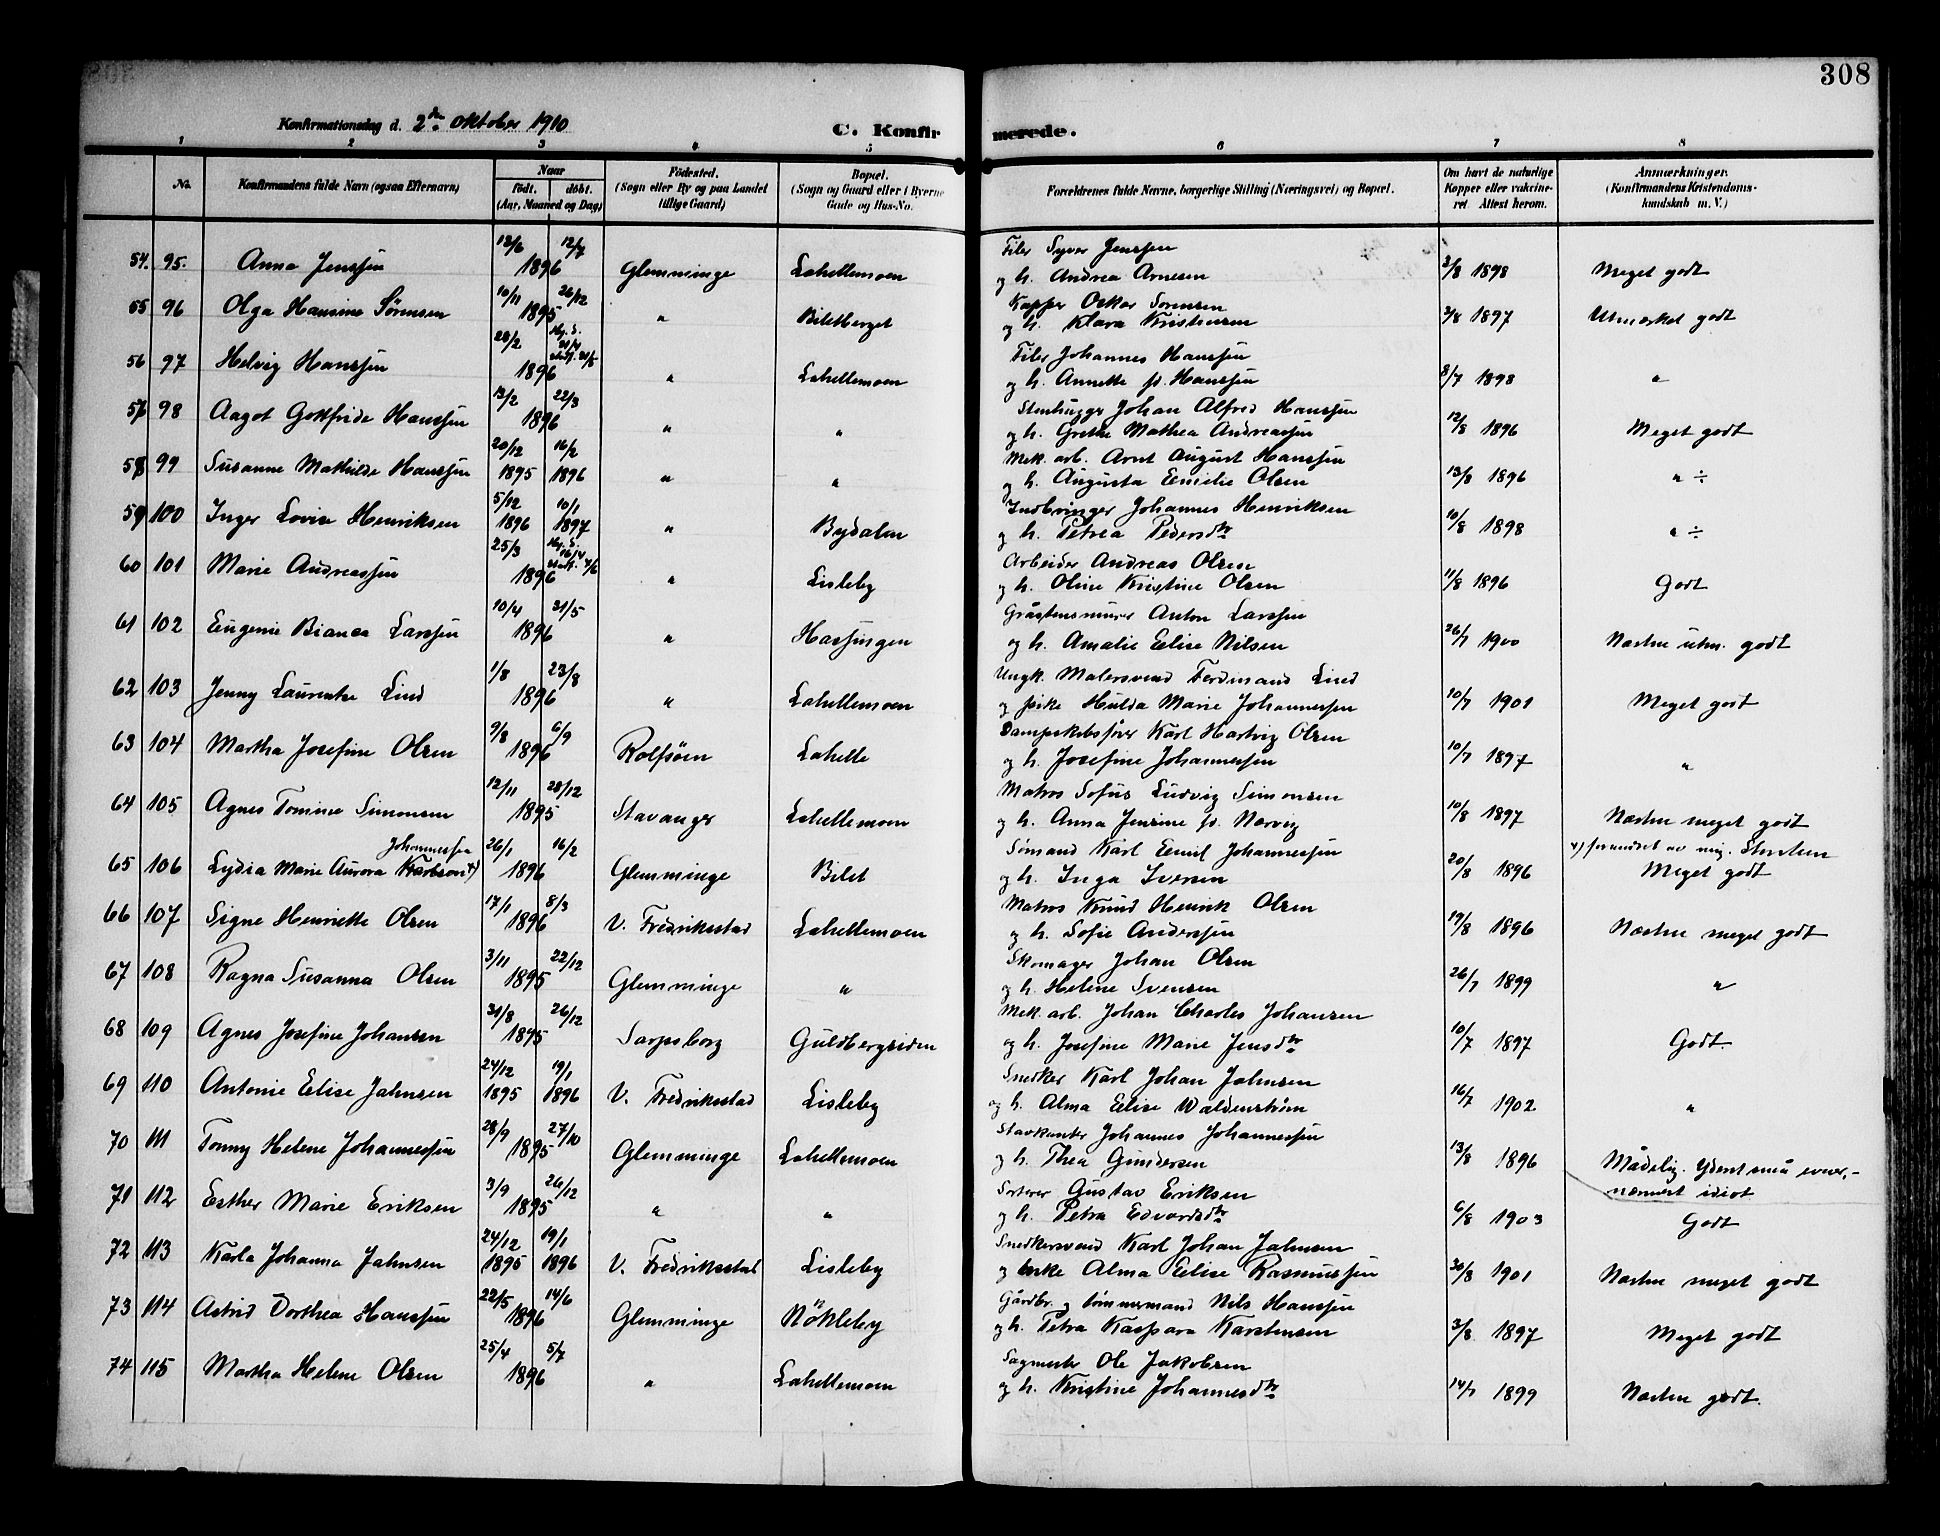 308
Konfirmationsdag d. 2den Oktober 1910
C. Konfir merede.
1 2 3 4 5 6 7 8
No.
Konfirmandens fulde Navn (ogsaa Efternavn)
Naar
født. døbt.
(Aar, Maaned og Dag)
Fødested.
(Sogn eller By og paa Landet
tillige Gaard)
Bopæl.
(Sogn og Gaard eller i Byerne
Gade og Hus-No.
Forældrenes fulde Navne, borgerlige Stilling (Næringsvei) og Bopæl.
Om havt de naturlige
Kopper eller vakcine-
ret Attest herom.
Anmærkninger.
(Konfirmandens Kristendoms-
kundskab m. V.)
12/6 12/7 Filer Syver Jenssen
54. 95. Anna Jenssen 1896 Glemminge Lahellemoen og h. Andrea Arnesen 2/8 1898 Meget godt
10/11 26/12 Kapper Oskar Sørensen
55 96 Olga Hansine Sørensen 1895 " Biletberget og h. Klara Kristensen 3/8 1897 Utmærket godt
28/2 Filer Johannes Hanssen
56 97 Helvig Hanssen 1896 " Lahellemoen og h. Annette f. Hanssen 8/7 1898 "
13/2 22/3 Stenhugger Johan Alfred Hanssen
57 98 Aagot Gottfride Hanssen 1896 " " og h. Grethe Mathea Andreassen 12/8 1896 Meget godt
20/12 16/2 Mek. arb. Arnt August Hanssen
58 99 Susanne Mathilde Hanssen 1895 1896 " " og h. Augusta Emilie Olsen 13/8 1896 " ÷
5/12 10/1 Indbringer Johannes Henriksen
59 100 Inger Lovise Henriksen 1896 1897 " Bydalen og h. Petrea Pedersdtr 10/8 1898 " ÷
25/3 Arbeider Andreas Olsen
60 101 Marie Andreassen 1896 " Lisleby og h. Oline Kristine Olsen 11/8 1896 Godt
10/4 31/5 Gråstensmurer Anton Larssen
61 102 Eugenie Bianca Larssen 1896 " Hassingen og h. Amalie Elise Nilsen 26/7 1900 Næsten utm. godt
1/8 23/8 Ungk. Malersvend Ferdinand Lind
62 103 Jenny Laurentse Lind 1896 " Lahellemoen og pike Hulda Marie Johannessen 10/7 1901 Meget godt
9/8 6/9 Dampskibsfører Karl Hartvig Olsen
63 104 Martha Josefine Olsen 1896 Rolfsøen Lahelle og h. Josefine Johannessen 10/7 1897 "
12/11 28/12 Matros Sofus Ludvig Simonsen
64 105 Agnes Tomine Simonsen 1895 Stavanger Lahellemoen og h. Anna Jensine f. Nærvig 10/8 1897 Næsten meget godt
Johannessen 26/1 16/2 Sømand Karl Emil Johannessen x) forandret av mig.
65 106 Lydia Marie Aurora Karlsen x) 1896 Glemminge Bilet og h. Inga Iversen 20/8 1896 Meget godt
17/1 8/3 Matros Knud Henrik Olsen
66 107 Signe Henriette Olsen 1896 V. Fredriksstad Lahellemoen og h. Sofie Anderssen 19/8 1896 Næsten meget godt
3/11 22/12 Skomager Johan Olsen
67 108 Ragna Susanna Olsen 1895 Glemminge " og h. Helene Svensen 26/7 1899 "
31/8 26/12 Mek. arb. Johan Charles Johansen
68 109 Agnes Josefine Johansen 1895 Sarpsborg Guldbergsiden og h. Josefine Marie Jensdtr 10/7 1897 Godt.
24/12 19/1 Snedker Karl Johan Jahnsen
69 110 Antonie Elise Jahnsen 1895 1896 V. Fredriksstad Lisleby og h. Alma Elise Waldenstrøm 16/7 1902 "
28/9 27/10 Stavkanter Johannes Johannessen
70 111 Tonny Helene Johannessen 1895 Glemminge Lahellemoen og h. Thea Gundersen 13/8 1896 Mådelig. Ydent små evner,-
nærmest idiot
3/9 26/12 Sorterer Gustav Eriksen
71 112 Esther Marie Eriksen 1895 " " og h. Petra Edvardsdtr 6/8 1903 Godt
24/12 19/1 Snedkersvend Karl Johan Jahnsen
72 113 Karla Johanna Jahnsen 1895 1896 V. Fredriksstad Lisleby og enke Alma Elise Rasmussen 30/8 1901 Næsten meget godt
22/5 14/6 Gårdbr. og tømmermand Nils Hanssen
73 114 Astrid Dorthea Hanssen 1896 Glemminge Nøkleby og h. Petra Kaspara Karstensen 3/8 1897 Meget godt
25/4 5/7 Sagmester Ole Jakobsen
74 115 Martha Helene Olsen 1896 " Lahellemoen og h. Kristine Johannesdtr 14/7 1899 Næsten godt.